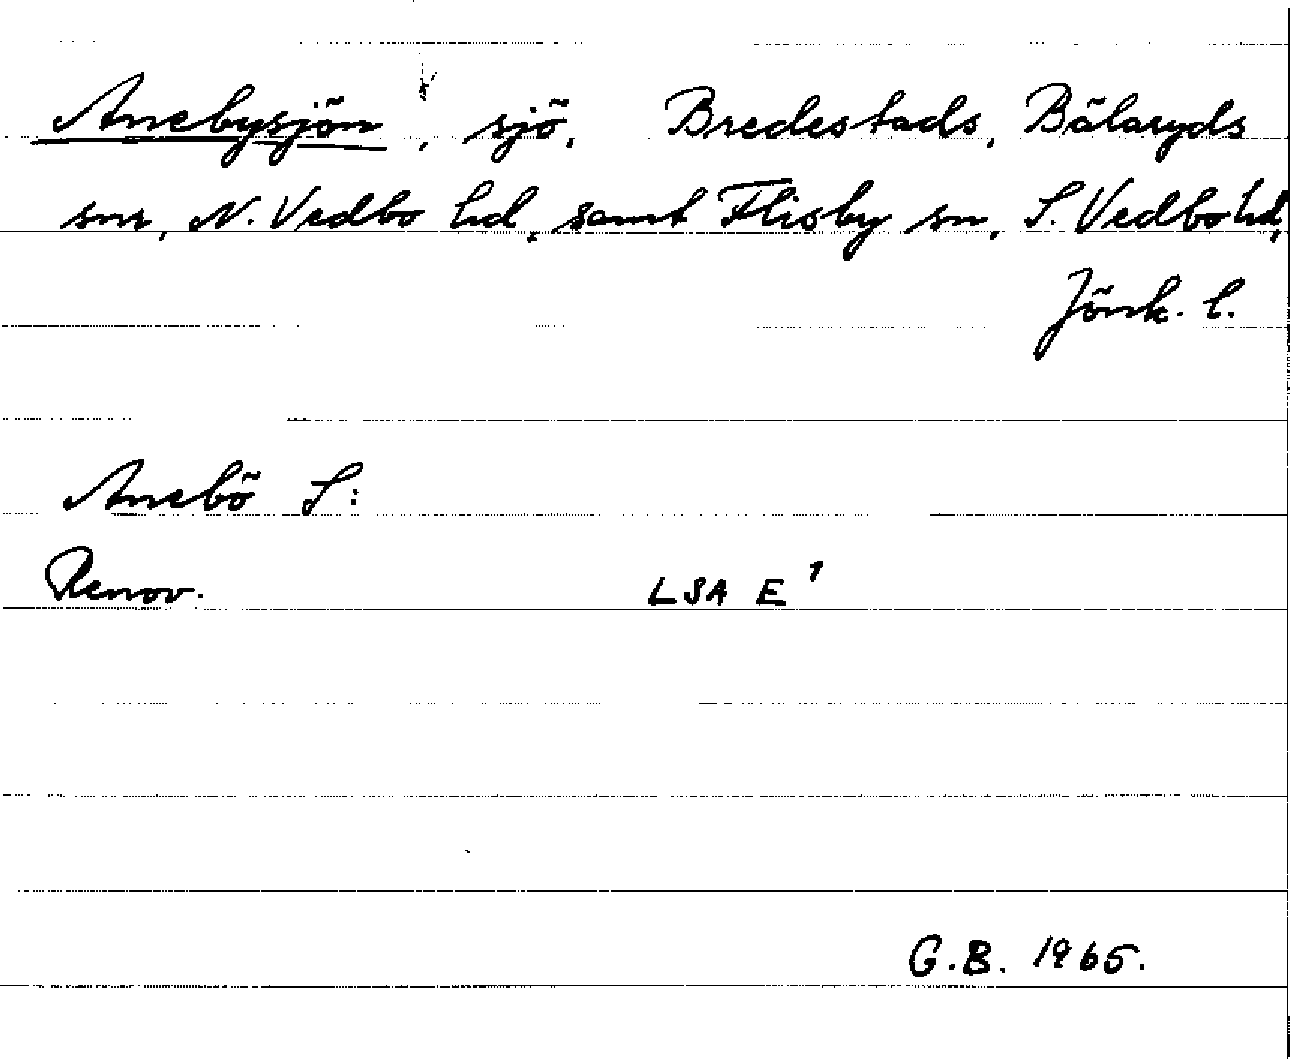 Anebysjön, sjö, Bredestads, Bälaryds
snr, N. Vedbo hd, samt Flisby sn, S. Vedbo hd,
Jönk. l.
Anebö S:
Renov. LSA E¹
G.B. 1965.